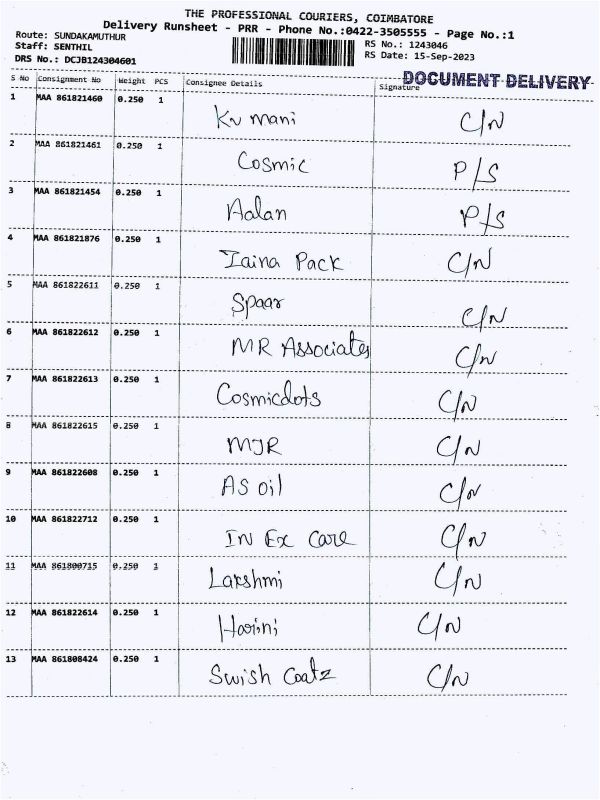 THE PROFESSIONAL COURIERS, COIMBATORE
Delivery Runsheet - PRR - Phone No.:0422-3505555 - Page No.:1
Route: SUNDAKAMUTHUR
Staff: SENTHIL RS No.: 1243046
DRS No.: DCJB124304601 RS Date: 15-Sep-2023
DOCUMENT DELIVERY
S No Consignment No Weight PCS Consignee Details Signature
1 MAA 861821460 0.250 1 Kumani C/N
2 MAA 861821461 0.250 1 Cosmic P/S
3 MAA 861821454 0.250 1 Aalan P/S
4 MAA 861821876 0.250 1 Iaina Pack C/N
5 MAA 861822611 0.250 1 Spaar C/N
6 MAA 861822612 0.250 1 MR Associates C/N
7 MAA 861822613 0.250 1 Cosmicdots C/N
8 MAA 861822615 0.250 1 MJR C/N
9 MAA 861822608 0.250 1 AS oil C/N
10 MAA 861822712 0.250 1 IN Ex Care C/N
11 MAA 861800715 0.250 1 Lakshmi C/N
12 MAA 861822614 0.250 1 Harini C/N
13 MAA 861808424 0.250 1 Swish Coatz C/N